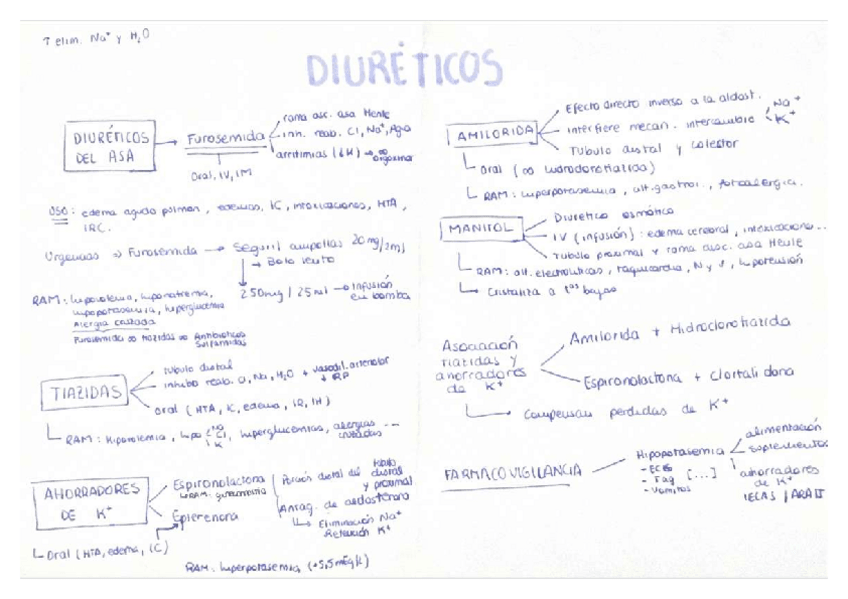 ↑ elim. Na⁺ y H₂O
DIURÉTICOS
DIURÉTICOS
DEL ASA
→ Furosemida
rama asc. asa Henle
inh. reab. Cl, Na⁺, Agua
arritmias (↓H) →
Oral, IV, IM
USO: edema agudo pulmon, edemas, IC, intoxicaciones, HTA,
IRC.
Urgencias ⇒ Furosemida → Seguril ampollas 20mg/2ml
→ Bolo lento
250mg / 25ml → Infusión
en bomba
RAM: hipovolemia, hiponatremia,
hipopotasemia, hiperglucemia
Alergia cruzada
Furosemida ∞ tiazidas ∞ Antibióticos
Sulfamidas
TIAZIDAS
tubulo distal
inhibe reab. Cl, Na, H₂O + vasodil. arteriolar
↓ RP
oral (HTA, IC, edema, IR, IH)
RAM: Hipovolemia, hipo Na Cl K, hiperglucemias, alergias
cruzadas
AHORRADORES
DE K⁺
Espironolactona
RAM: ginecomastia
Eplerenona
Porción distal del túbulo
distal
y proximal
Antag. de aldosterona
↳ Eliminación Na⁺
Retención K⁺
Oral (HTA, edema, IC)
RAM: hiperpotasemia (+5,5 mEq/L)
AMILORIDA
Efecto directo inverso a la aldost.
interfiere mecan. intercambio Na⁺ K⁺
Tubulo distal y colector
Oral (∞ hidroclorotiazida)
RAM: hiperpotasemia, alt. gastroi., fotoalergia.
MANITOL
Diuretico osmótico
IV (infusión): edema cerebral, intoxicaciones...
Tubulo proximal y rama desc. asa Henle
RAM: alt. electroliticas, taquicardia, N y V, hipotensión
Cristaliza a tªs bajas
Asociación
tiazidas y
ahorradores
de K⁺
Amilorida + Hidroclorotiazida
Espironolactona + Clortalidona
Compensan perdidas de K⁺
FARMACOVIGILANCIA
Hipopotasemia
- ECG
- Taq [...]
- Vómitos
alimentación
suplementos
ahorradores
de K⁺
IECAS / ARA II